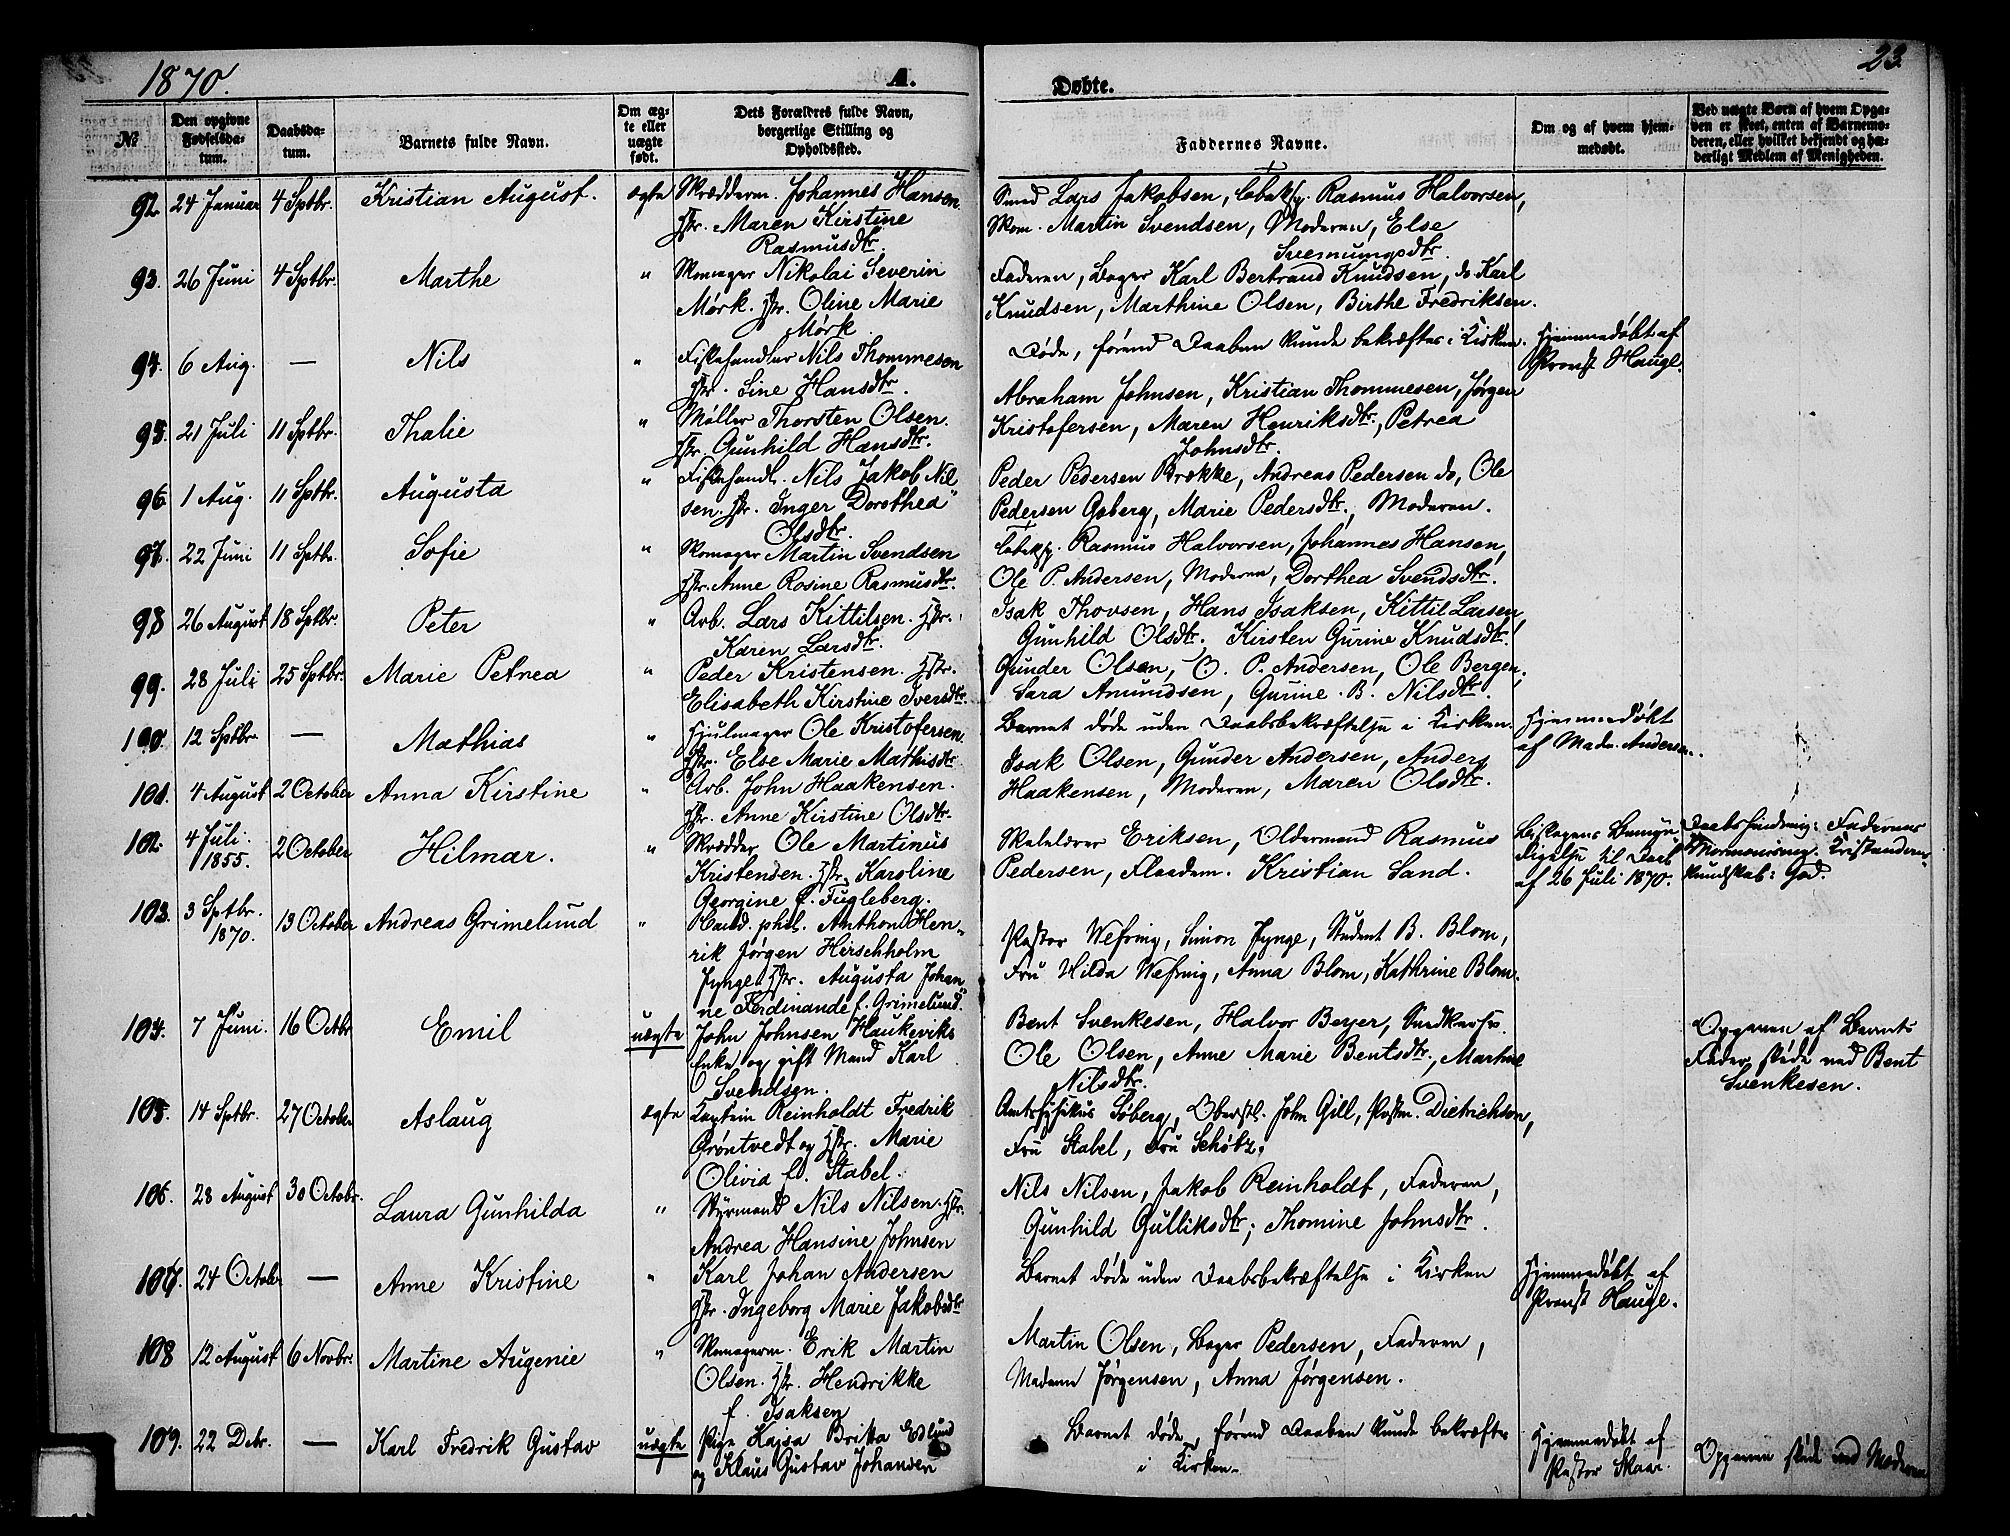 1870. A. Døbte. 23.
No
Den opgivne Fødselsdatum.
Daabsdatum.
Barnets fulde Navn.
Om ægte eller uægte født.
Dets Forældres fulde Navn, borgerlige Stilling og Opholdssted.
Faddernes Navne.
Om og af hvem hjemmedøbt.
Ved uægte Børn af hvem Opgaven er skeet, enten af Barnemoderen, eller hvilket bekjendt og hæderligt Medlem af Menigheden.
92. 24 Januar 4 Sptbr. Kristian August. ægte Skrædderm. Johannes Hansen
Hstr. Maren Kirstine
Rasmusdtr.
Smed Lars Jakobsen, Rasmus Halvorsen,
Skom. Martin Svendsen, Moderen, Else
Svennungsdtr.
93. 26 Juni 4 Sptbr. Marthe " Skomager Nikolai Severin
Mørk. Hstr. Oline Marie
Mørk
Faderen, Bager Karl Bertrand Knudsen, do Karl
Knudsen, Marthine Olsen, Birthe Fredriksen.
94. 6 Aug. — Nils " Fiskehandler Nils Thommesen
Hstr. Sine Hansdtr.
Døde, førend Daaben kunde bekræftes i Kirken.
Hjemmedøbt af
Provst Hauge.
95. 21 Juli 11 Sptbr. Thalie " Møller Thorsten Olsen.
Hstr. Gunhild Hansdtr.
Abraham Johnsen, Kristian Thommesen, Jørgen
Kristofersen, Maren Henriksdtr., Petrea
Johnsdtr.
96. 1 Aug. 11 Sptbr. Augusta " Fiskehandl. Nils Jakob Nil
sen. Hstr. Inger Dorothea
Olsdtr.
Peder Pedersen Brække, Andreas Pedersen do, Ole
Pedersen Goberg, Marie Pedersdtr., Moderen.
97. 22 Juni 11 Sptbr. Sofie " Skomager Martin Svendsen
Hstr. Anne Rosine Rasmusdtr.
Rasmus Halvorsen, Johannes Hansen,
Ole P. Andersen, Moderen, Dorthea Svendsdtr.
98 26 August 18 Sptbr. Peter " Arb. Lars Kittilsen. Hstr.
Karen Larsdtr.
Isak Thovsen, Hans Isaksen, Kittil Larsen,
Gunhild Olsdtr. Kirsten Gurine Knudsdtr.
99. 28 Juli 25 Sptbr. Marie Petrea " Peder Kristensen. Hstr.
Elisabeth Kirstine Iversdtr.
Gunder Olsen, O. P. Andersen, Ole Bergen,
Sara Amundsen, Gurine B. Nilsdtr.
100. 12 Sptbr. — Mathias " Hjulmager Ole Kristofersen
Hstr. Else Marie Mathisdtr
Barnet døde uden Daabsbekræftelse i Kirken.
Hjemmedøbt
af Mad. Andersen.
101. 4 August 2 October Anna Kirstine " Arb. John Haakensen.
Hstr. Anne Kirstine Olsdtr.
Isak Olsen, Gunder Andersen, Anders
Haakensen, Moderen, Maren Olsdtr.
102. 4 Juli
1855. 2 October Hilmar. " Skrædder Ole Martinus
Kristensen. Hstr. Karoline
Georgine f. Fugleberg.
Skolelærer Eriksen, Oldermand Rasmus
Pedersen, Kristian Sand.
Biskopens
til Daab
af 26 Juli 1870.
Daabshindring: Faderens
Mormonisme. Kristendoms
kundskab: God.
103. 3 Sptbr.
1870. 13 October Andreas Grimelund " Cand. phil. Anthon Hen-
rik Jørgen Hirschholm
Jynge Hstr. Augusta Johan
ne Ferdinande f. Grimelund.
Pastor Wefring, Simon Jynge, Student B. Blom,
Fru Hilda Wefring, Anna Blom, Kathrine Blom.
104. 7 Juni. 16 Octbr Emil uægte John Johnsen Haukeviks
Enke og gift Mand Karl
Svendsen.
Bent Svenkesen, Halvor Beyer, Snedker
Ole Olsen, Anne Marie Bentsdtr., Marthe
Nilsdtr.
Opgaven af Barnets
Fader skede ved Bent
Svenkesen.
105. 14 Sptbr. 27 October Aslaug ægte Kaptein Reinholdt Fredrik
Grøntvedt og Hstr. Marie
Olivia f. Stabel.
Amtsfysikus Søberg, Oberstl. John Gill, Dietrichson,
Fru Stabel, Fru Schøtz.
106. 28 August 30 Octobr. Laura Gunhilda " Styrmand Nils Nilsen. Hstr.
Andrea Hansine Johnsen
Nils Nilsen, Jakob Reinholdt, Faderen,
Gunhild Gulliksdtr; Thomine Johnsdtr.
107. 24 October — Anne Kristine " Karl Johan Andersen
Hstr. Ingeborg Marie Jakobsdtr
Barnet døde uden Daabsbekræftelse i Kirken
Hjemmedøbt af
Provst Hauge.
108 12 August 6 Novbr. Martine Augenie " Skomagerm. Erik Martin
Olsen. Hstr. Hendrikke
f. Isaksen
Martin Olsen, Bager Pedersen, Faderen,
Madam Jørgensen, Anna Jørgensen.
109. 22 Debr. — Karl Fredrik Gustav uægte Pige Kajsa Britta Edlund
og Klaus Gustav Johansen
Barnet døde, førend Daaben kunde bekræftes
i Kirken.
Hjemmedøbt af
Pastor Skaar.
Opgaven skede ved Moderen